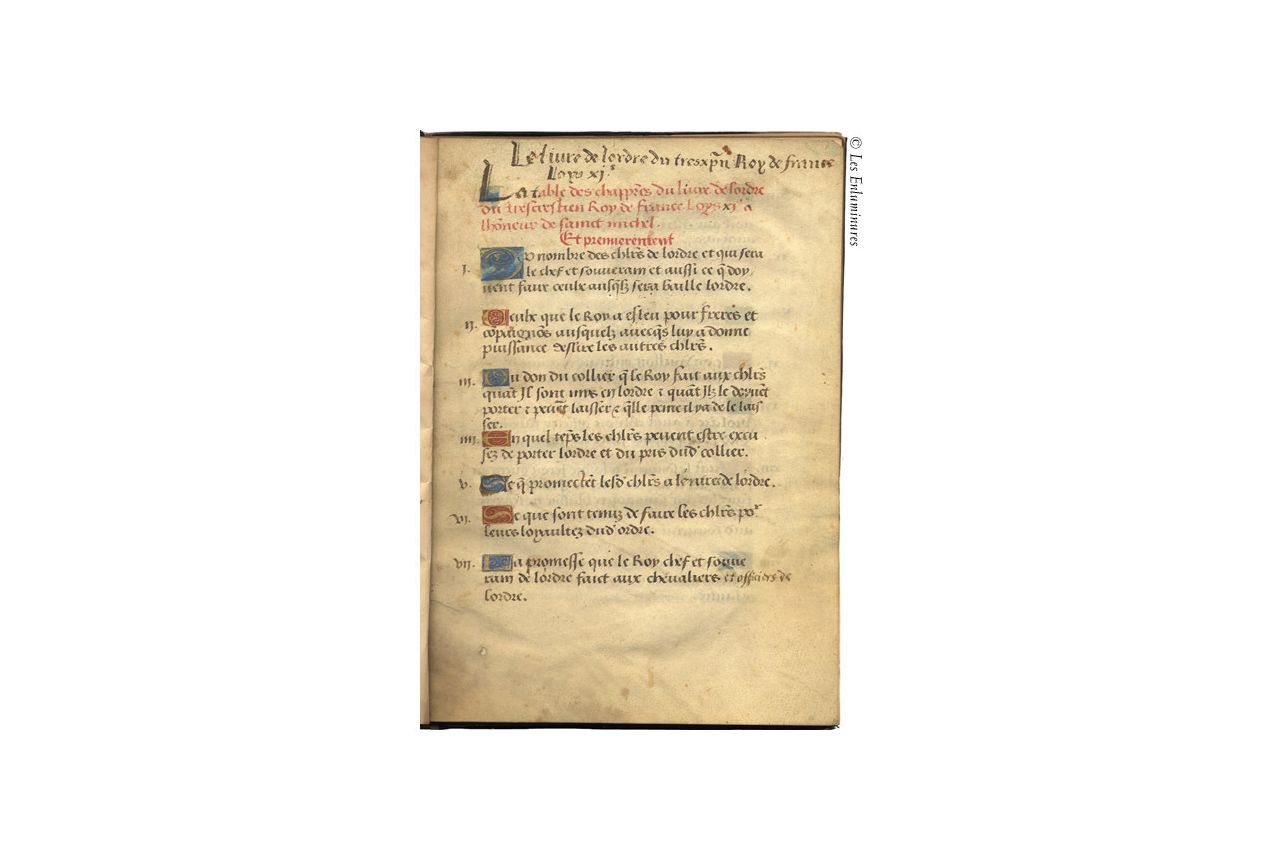 Le livre de lordre du tresxpñ Roy de france
Loys xi.e
La table des chappr̃es du livre de lordre
du trescrestien Roy de france Loys xi.e a
lhõneur de sainct michel.
Et premierem̃ent
I. Du nombre des chlr̃s de lordre et qui sera
le chef et souverain et aussi ce q̃ doy
vent faire ceulx ausq̃lz sera baille lordre.
II. Ceulx que le Roy a esleu pour freres et
cõpaignõs ausquelz avecq̃s luy a donne
puissance deslire les autres chlr̃s.
III. Du don du collier q̃ le Roy fait aux chlr̃s
quãt Il sont mys en lordre & quãt Ilz le doyuẽt
porter & peuẽt laisser & q̃lle peine il ya de le lais
ser.
IIII. En quel tẽps les chlr̃s peuent estre excu
sez de porter lordre et du pris dud' collier.
V. Ce q̃ promectẽt lesd' chlr̃s a lẽtree de lordre.
VI. Ce que sont tenuz de faire les chlr̃s por
leurs loyaultez dud' ordre.
VII. La promesse que le Roy chef et souve
rain de lordre faict aux chevaliers et officiers de
lordre.
© Les Enluminures